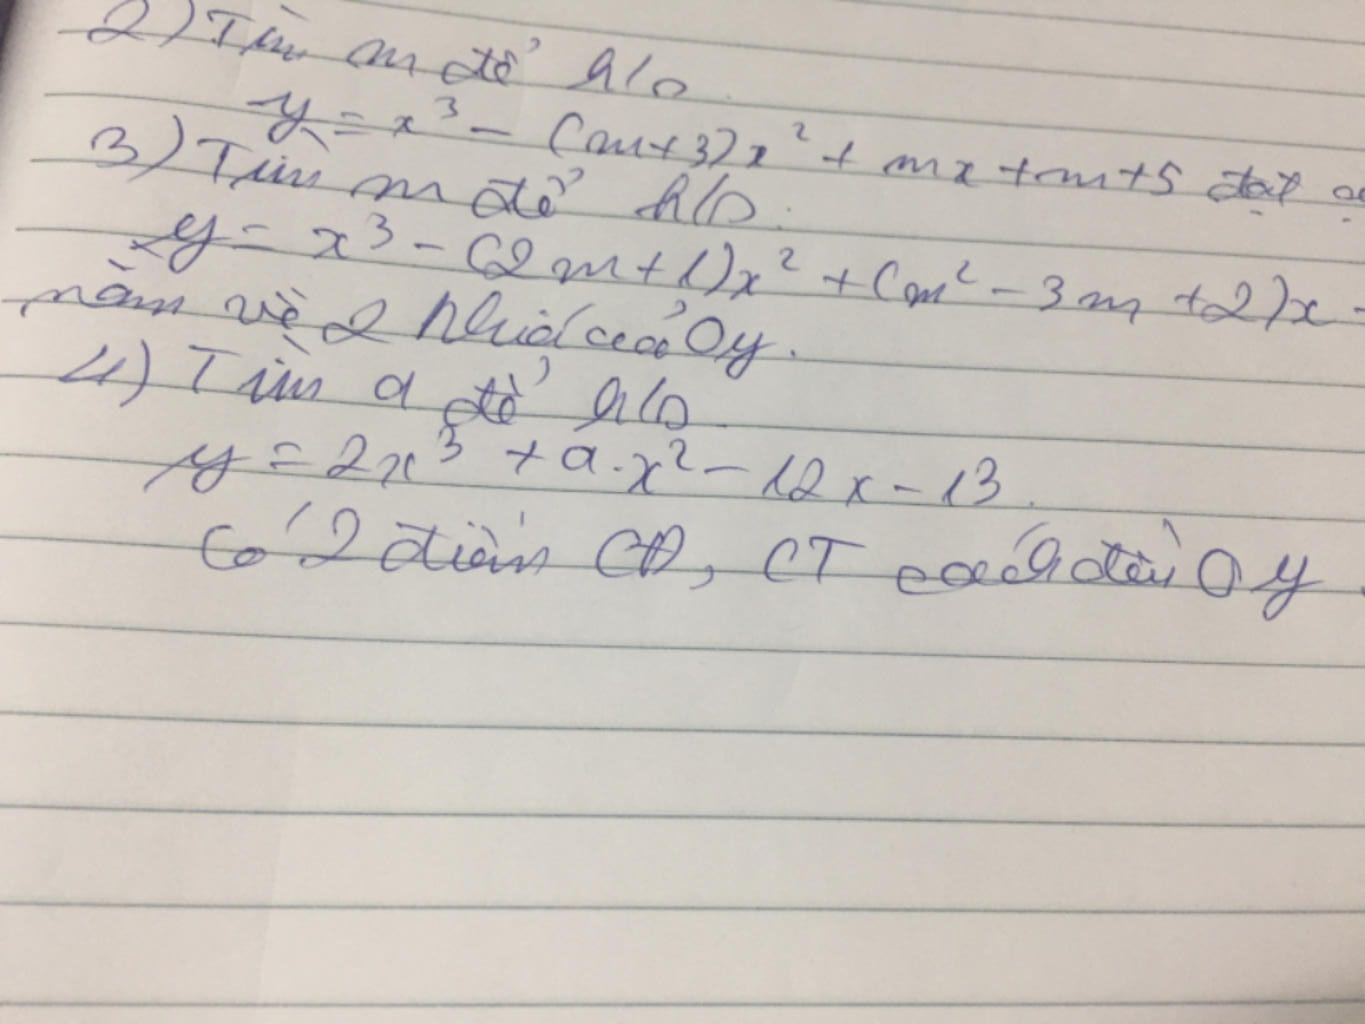 2) Tìm m để h/s
y = x³ - (m+3)x² + mx + m + 5 đạt
3) Tìm m để h/s.
y = x³ - (2m+1)x² + (m² - 3m + 2)x -
nằm về 2 phía của Oy.
4) Tìm a để h/s
y = 2x³ + a.x² - 12x - 13.
Có 2 điểm CĐ, CT cách đều Oy.